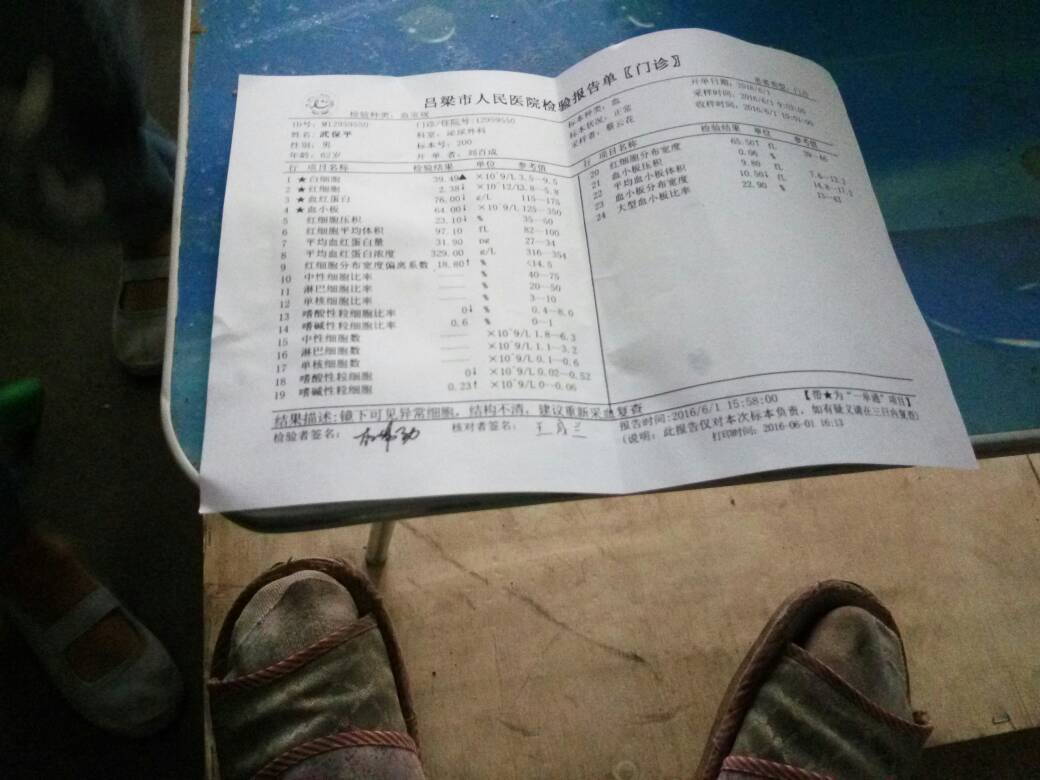 吕梁市人民医院检验报告单〖门诊〗
检验种类：血常规
ID号：M12959550 门诊/住院号：12959550
姓名：武保平 科室：泌尿外科
性别：男 标本号：200
年龄：62岁 开单者：刘百成
标本种类：血
标本状况：正常
采样者：蔡云花
开单日期：2016/6/1
采样时间：2016/6/1 9:03:00
收样时间：2016/6/1 15:01:00
行 项目名称 检验结果 单位 参考值
1 ★白细胞 39.49▲ ×10^9/L 3.5—9.5
2 ★红细胞 2.38↓ ×10^12/L 3.8—5.8
3 ★血红蛋白 76.00↓ g/L 115—175
4 ★血小板 64.00↓ ×10^9/L 125—350
5 红细胞压积 23.10↓ % 35—50
6 红细胞平均体积 97.10 fL 82—100
7 平均血红蛋白量 31.90 pg 27—34
8 平均血红蛋白浓度 329.00 g/L 316—354
9 红细胞分布宽度偏离系数 18.80↑ % <14.5
10 中性细胞比率 —— % 40—75
11 淋巴细胞比率 —— % 20—50
12 单核细胞比率 —— % 3—10
13 嗜酸性粒细胞比率 0↓ % 0.4—8.0
14 嗜碱性粒细胞比率 0.6 % 0—1
15 中性细胞数 —— ×10^9/L 1.8—6.3
16 淋巴细胞数 —— ×10^9/L 1.1—3.2
17 单核细胞数 —— ×10^9/L 0.1—0.6
18 嗜酸性粒细胞 0↓ ×10^9/L 0.02—0.52
19 嗜碱性粒细胞 0.23↑ ×10^9/L 0—0.06
行 项目名称 检验结果 单位 参考值
20 红细胞分布宽度 65.50↑ fL 39—46
21 血小板压积 0.06 %
22 平均血小板体积 9.80 fL 7.6—13.2
23 血小板分布宽度 10.50↓ fL 14.8—17.2
24 大型血小板比率 22.90 % 13—43
结果描述：镜下可见异常细胞，结构不清，建议重新采血复查
检验者签名： 核对者签名：
报告时间：2016/6/1 15:58:00 【带★为“一单通”项目】
(说明：此报告仅对本次标本负责，如有疑义请在三日内复查)
打印时间：2016-06-01 16:13